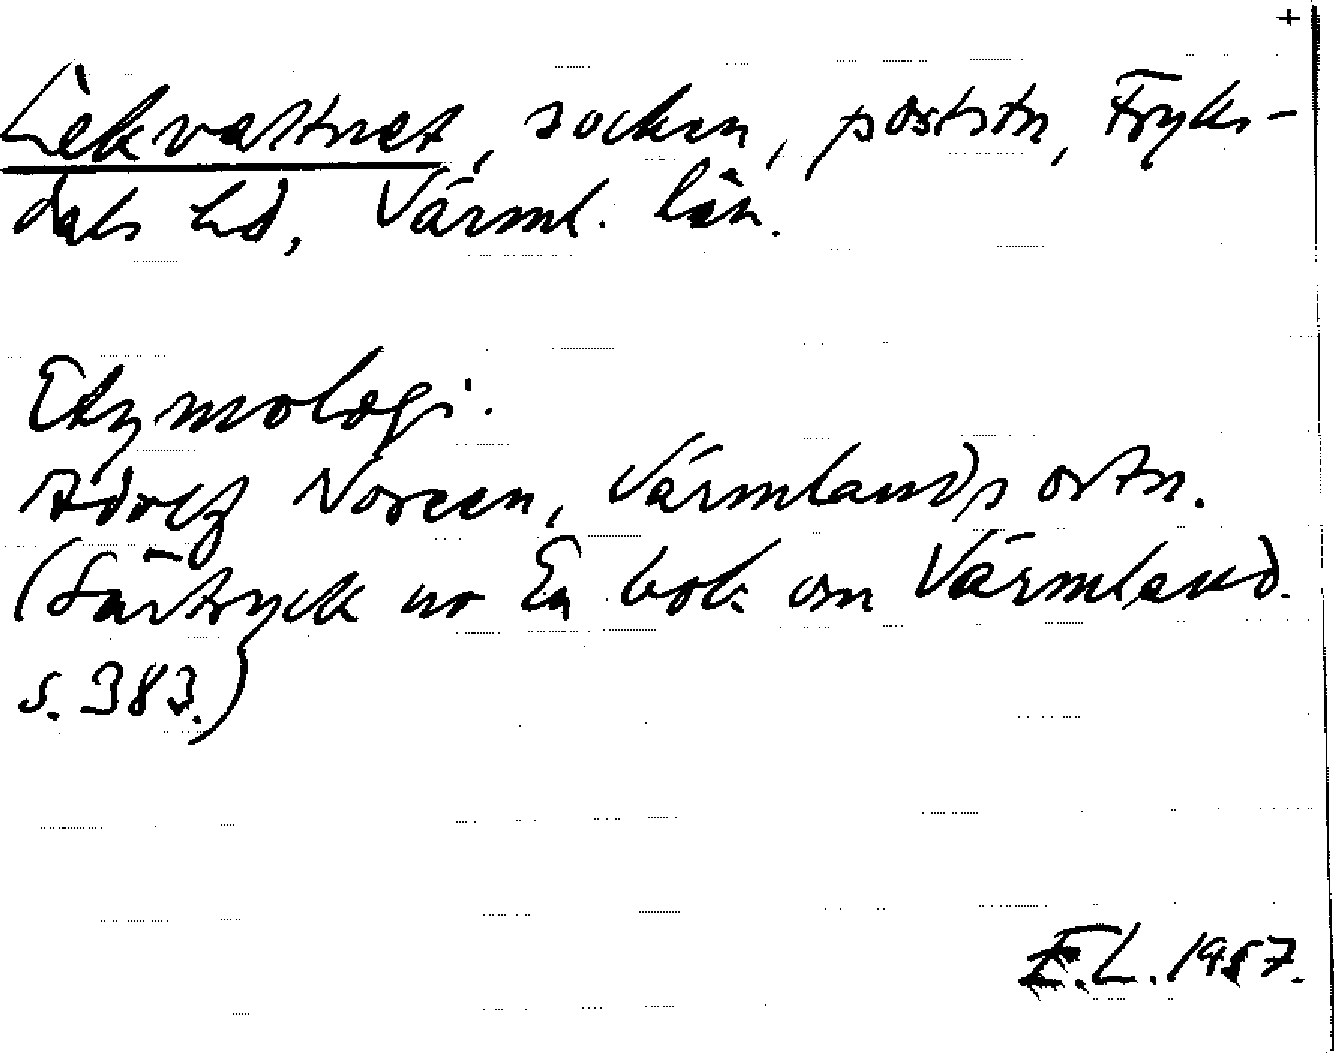 +
Lekvattnet, socken, poststn, Fryks-
dals hd, Värml. län.
Etymologi.
Adolf Noreen, Värmlands ortn.
(Särtryck ur En bok om Värmland.
s. 383.)
F.L. 1957.